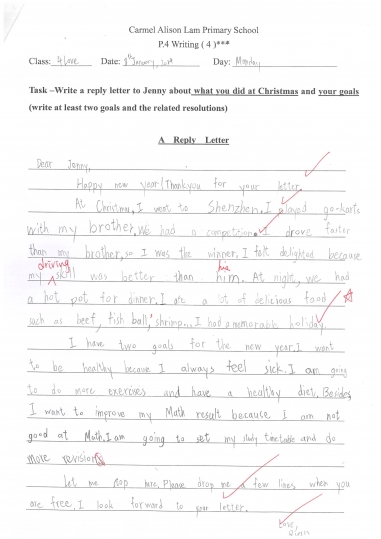 Carmel Alison Lam Primary School
P.4 Writing ( 4 )***
Class: 4 Love Date: January, Day: Monday
Task –Write a reply letter to Jenny about what you did at Christmas and your goals
(write at least two goals and the related resolutions)
A Reply Letter
Dear Jenny,
Happy new year! Thankyou for your letter.
At Christmas, I went to Shenzhen. I played go-karts
with my brother. We had a competition. I drove faster
than my brother, so I was the winner. I felt delighted because
driving his
my skill was better than him. At night, we had
a hot pot for dinner. I ate a lot of delicious food
such as beef, fish ball, shrimp... I had a memorable holiday.
I have two goals for the new year. I want
to be healthy because I always feel sick. I am going
to do more exercises and have a healthy diet. Besides,
I want to improve my Math result because I am not
good at Math. I am going to set my study timetable and do
more revisions
Let me stop here. Please drop me a few lines when you
are free. I look forward to your letter.
Love,